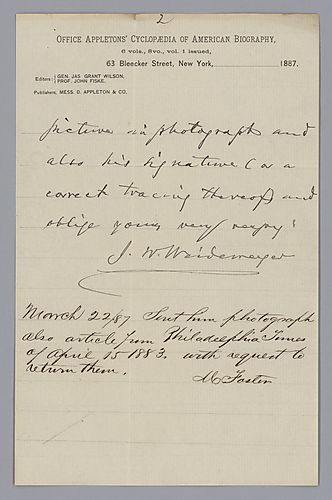 2
OFFICE APPLETONS' CYCLOPÆDIA OF AMERICAN BIOGRAPHY,
6 vols., 8vo., vol. 1 issued,
63 Bleecker Street, New York, 1887.
Editors: GEN. JAS GRANT WILSON,
PROF. JOHN FISKE.
Publishers, MESS. D. APPLETON & CO.
picture in photograph and
also his signature (or a
correct tracing thereof) and
oblige yours very
J. W. Weidemeyer
March 22/87 Sent him photograph
also article from Philadelphia Times
of April 15 1883. with request to
return them.
M Foster